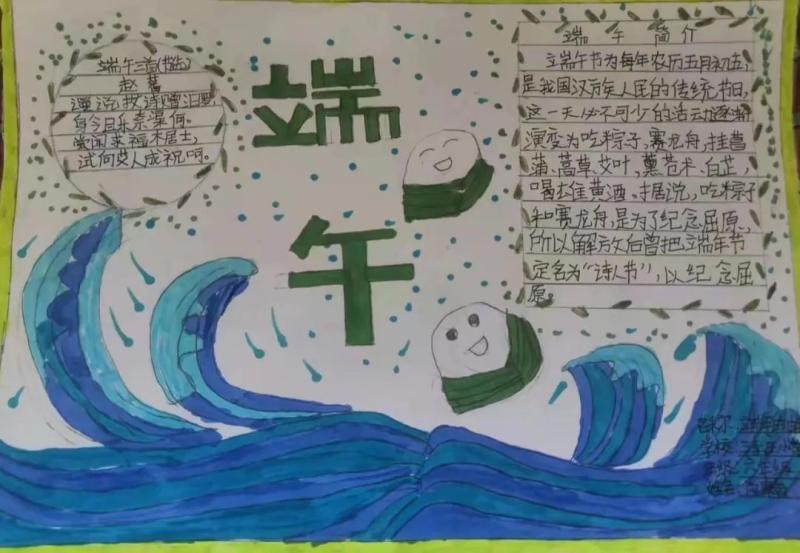 端午三首(其三)
赵蕃
谩说投诗赠汨罗,
身今且乐奈渠何。
尝闻求福木居士,
试向艾人成祝呵。
端午
端午简介
端午节为每年农历五月初五,
是我国汉族人民的传统节日,
这一天必不可少的活动逐渐
演变为吃粽子,赛龙舟,挂菖
蒲、蒿草、艾叶,薰苍术、白芷,
喝雄黄酒。据说,吃粽子
和赛龙舟,是为了纪念屈原,
所以解放后曾把端午节
定名为“诗人节”,以纪念屈
原。
学校:
班级:六年级
姓名: